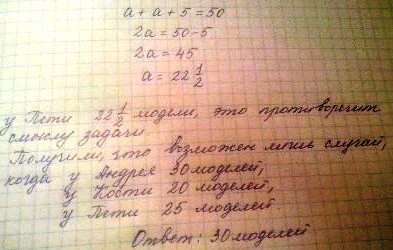 a + a + 5 = 50
2a = 50 - 5
2a = 45
a = 22 1/2
у Пети 22 1/2 модели, это противоречит
смыслу задачи
Получили, что возможен лишь случай,
когда у Андрея 30 моделей,
у Кости 20 моделей,
у Пети 25 моделей
Ответ: 30 моделей